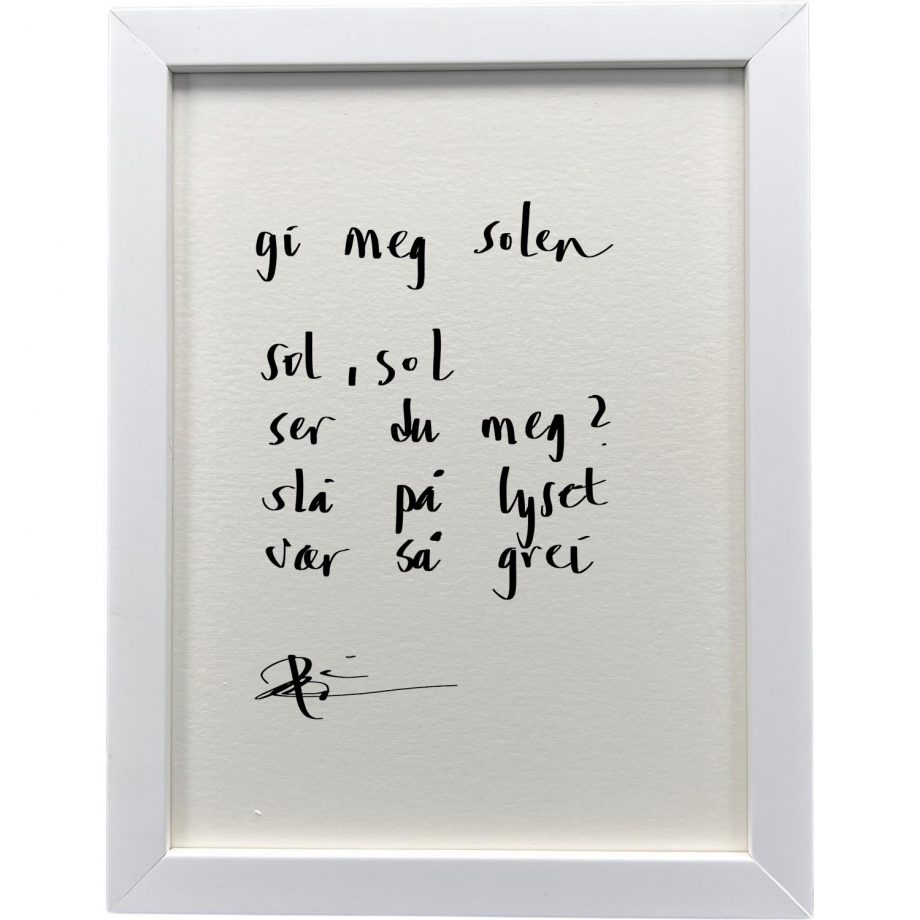 gi meg solen
sol, sol
ser du meg?
slå på lyset
vær så grei